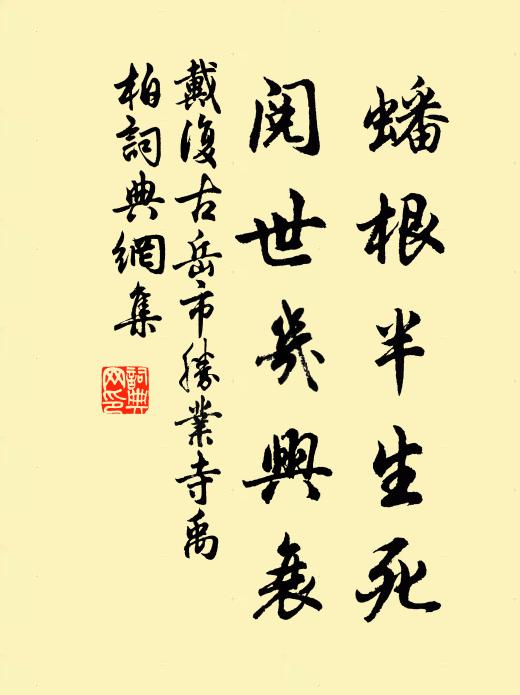 蟠根半生死
閱世幾興衰
戴復古岳市勝業寺禹
柏詞典網集
詞典
网印